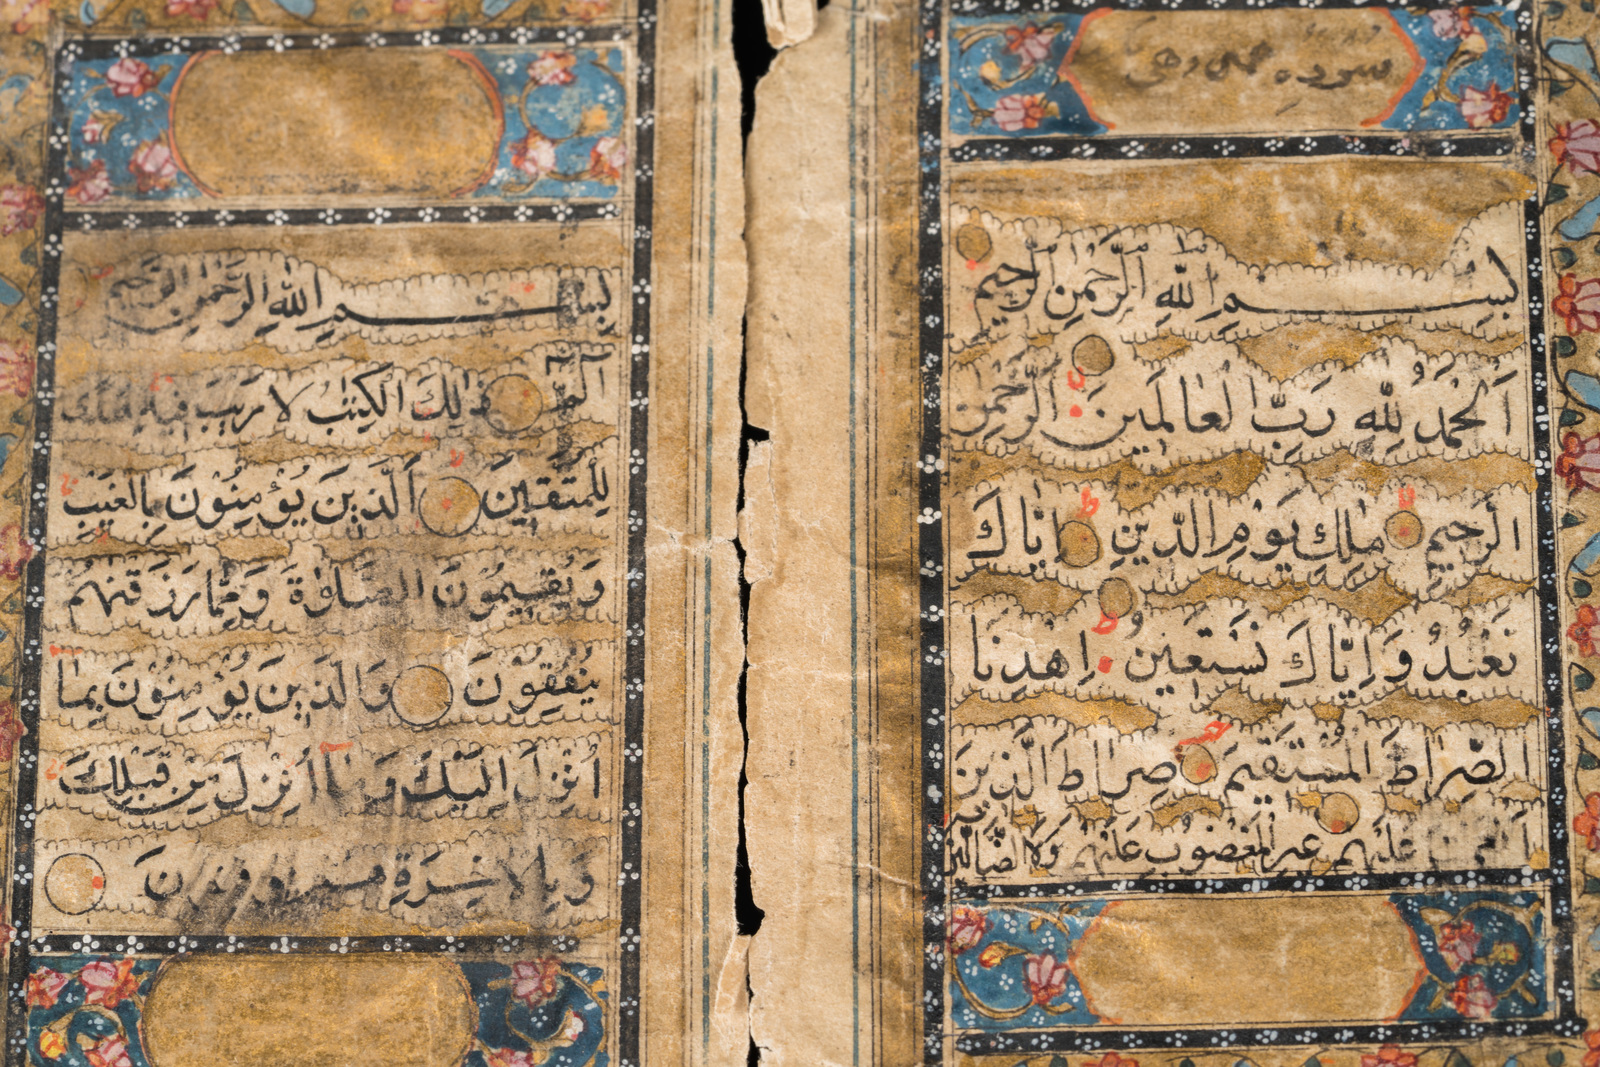 سورة
بِسْمِ اللهِ الرَّحْمٰنِ الرَّحِيْمِ
اَلْحَمْدُ لِلّٰهِ رَبِّ الْعَالَمِيْنَ الرَّحْمٰنِ
الرَّحِيْمِ مٰلِكِ يَوْمِ الدِّيْنِ اِيَّاكَ
نَعْبُدُ وَ اِيَّاكَ نَسْتَعِيْنُ اِهْدِنَا
الصِّرَاطَ الْمُسْتَقِيْمَ صِرَاطَ الَّذِيْنَ
عَلَيْهِمْ غَيْرِ الْمَغْضُوْبِ عَلَيْهِمْ وَلَا الضَّالِّيْنَ
بِسْمِ اللهِ الرَّحْمٰنِ الرَّحِيْمِ
الٓمّٓ ذٰلِكَ الْكِتٰبُ لَا رَيْبَ فِيْهِ
لِلْمُتَّقِيْنَ اَلَّذِيْنَ يُؤْمِنُوْنَ بِالْغَيْبِ
وَيُقِيْمُوْنَ الصَّلٰوةَ وَمِمَّا رَزَقْنٰهُمْ
يُنْفِقُوْنَ وَالَّذِيْنَ يُؤْمِنُوْنَ بِمَا
اُنْزِلَ اِلَيْكَ وَمَا اُنْزِلَ مِنْ قَبْلِكَ
وَبِالْاٰخِرَةِ